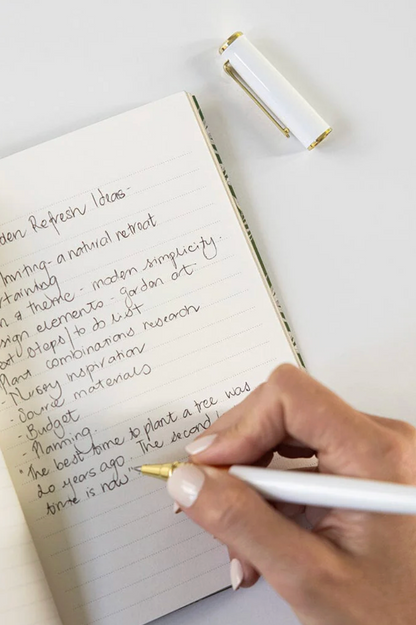 den Refresh Ideas-
Inviting - a natural retreat
rtaining
n & theme - modern simplicity.
sign elements - garden art
xt steps/to do list
Plant combinations research
Nursery inspiration
- Source materials
- Budget
- Planning.
"The best time to plant a tree was
20 years ago. The second
time is now